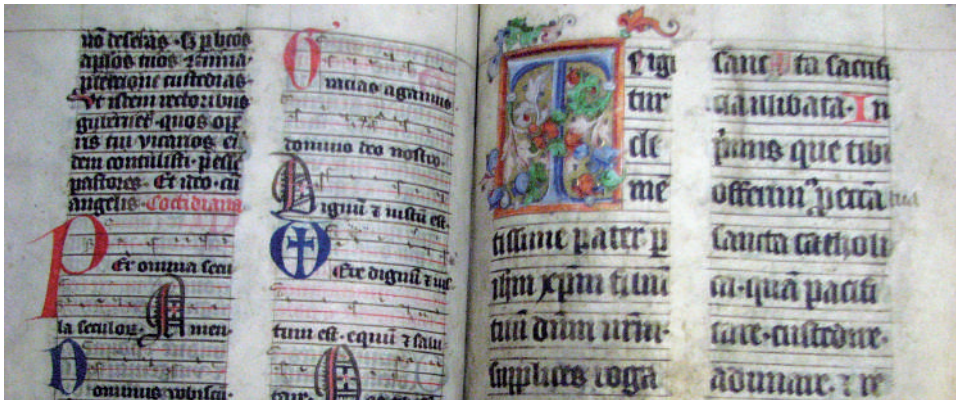 nō deseras · sƺ p btōs
aplōs tuos ꝯtinua
ptectione custodias ·
Vt ijsdem rectoribus
gubernet̄ · quos opīs
ris tui vicarios ei
dem contulisti · p̄esse
pastores · Et ideo · cū
angelis · Cottidiana
Per omnia secu
la seculoꝝ · Amen ·
Dominus vobiscū ·
Gracias agamus
domino deo nostro ·
Dignū ⁊ iustū est ·
Vere dignū ⁊ ius
tum est · equū ⁊ salu
tare ·
Te Igi
tur
cle
mē
tissime pater p
ihm xpm filiuū
tuū dūm nrm ·
supplices roga
sanc ta sacrifi
cia illibata · In
primis que tibi
offerimꝰ p ecc̄ia tua
sancta catholi
ca · quā pacifi
care · custodire ·
adunare · ⁊ re